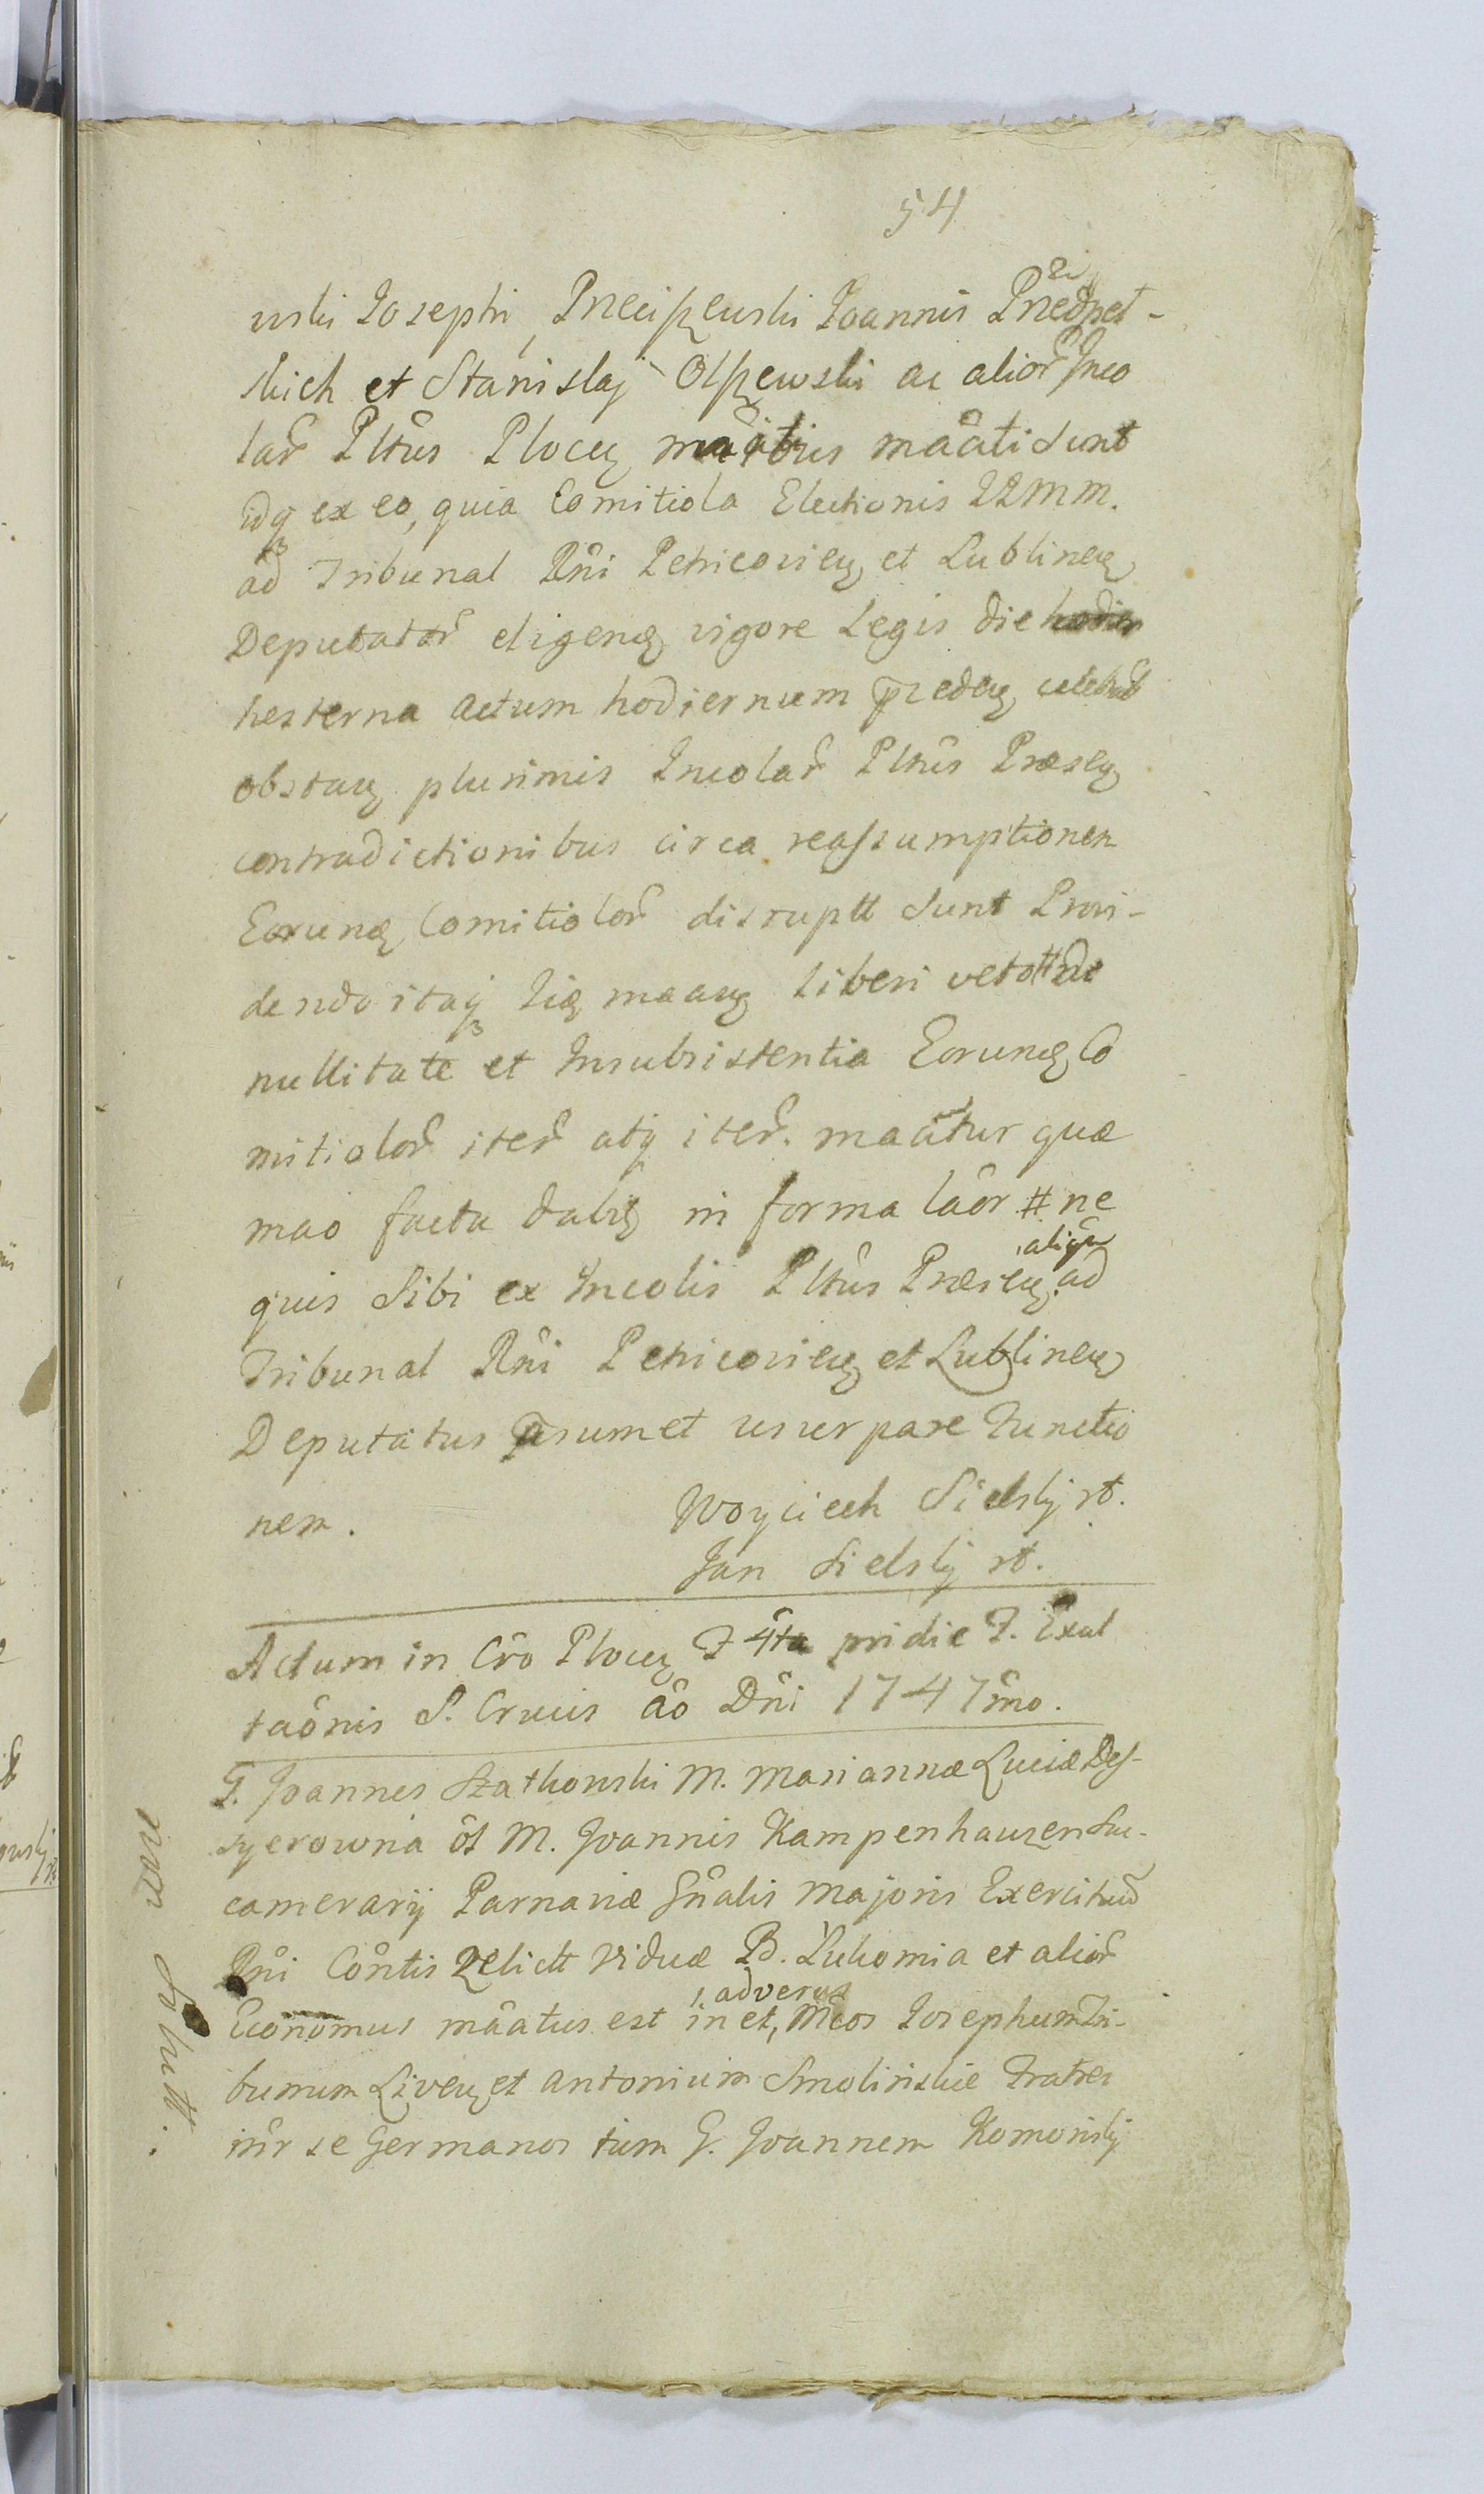 54
wski Josephi, Przeciszewski Joannis Przedpeł-
skich et Stanislaj Olszewski ac alior̃ Inco
lar̃ Pltûs Plocen̨ maâti sunt
idq̨ ex eo, quia Comitiola Electionis IIMM.
ad Tribunal Rñi Petricovien̨ et Lublinen̨
Deputator̃ eligend̨ vigore Legis die hodier
hesterna actum hodiernum præceden̨ celebrat
obstan̨ plurimis Incolar̃ Pltûs Præsen̨
contradictionibus circa reassumptionem
Eorund̨ Comitiolor̃ disruptt sunt Provi-
dendo itaq̨ maan̨ liberi veto # de
nullitate et Insubsistentia Eorund̨ Co
mitiolor̃ iter̃ atq̨ iter̃. maâtur quæ
mao facta in forma laôr # ne
quis sibi ex Incolis Pltûs Præsen̨ ad
Tribunal Rñi Petricovien̨ et Lublinen̨
Deputatus p̃sumet usurpare Functio
nem. Woyciech Sielskj rt.
Jan Sielskj rt.
Actum in Crô Plocen̨ F 4ta pridie F. Exal
taônis S. Crucis aô Dñi 1747mô.
G. Joannes Szatkowski M. Mariannæ Luciæ Des-
syerowna ôl M. Joannis Kampenhauzen Suc-
camerarij Parnaviæ Gñalis Majoris Exercituũ
Rñi Coñtis relictt viduæ B. Lukomia et alior̃
Economus maâtus est in et, adversus Mcos Josephum Tri-
bunum Liven̨ et Antonium Smolinskie Fratres
iñr se Germanos tum G. Joannem Komorskj
man Solutt.